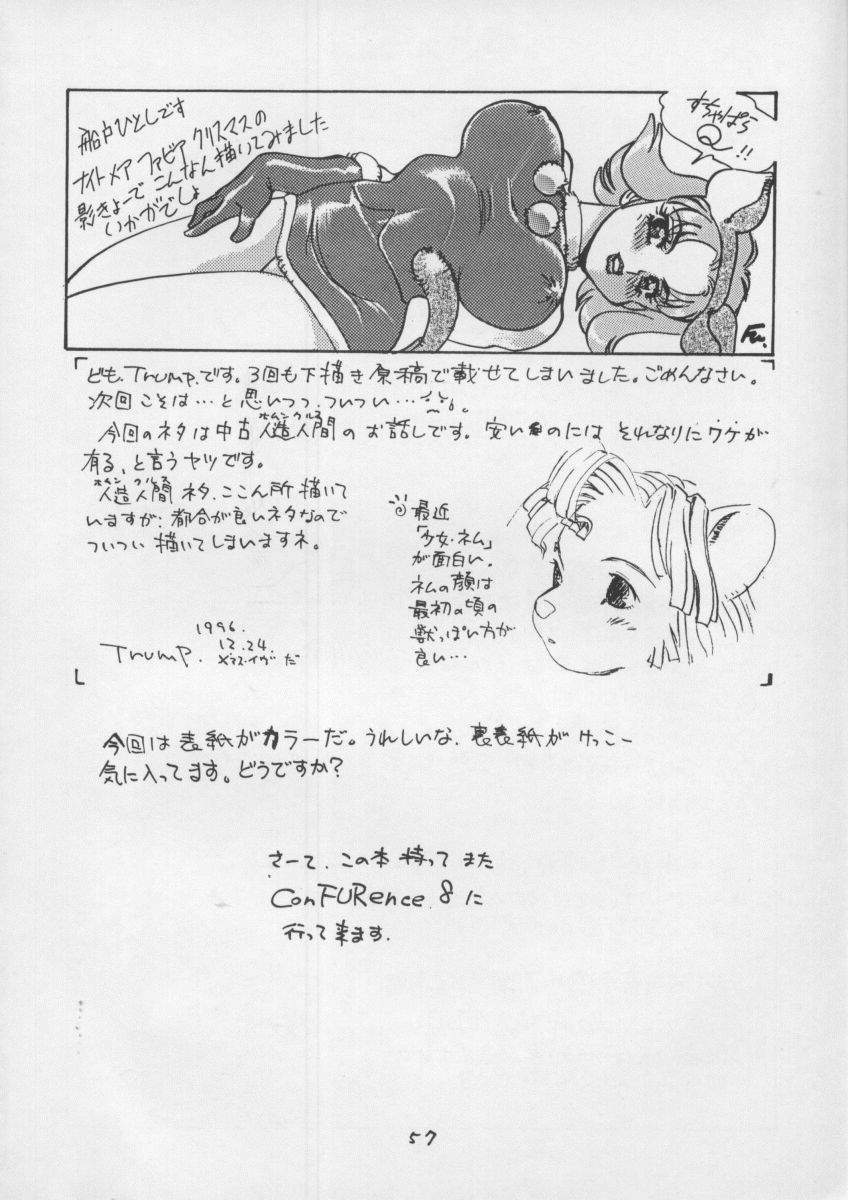 船戸ひとしです
ナイトメア ファビア クリスマスの
影きょーで こんなん描いてみました
いかがでしょ
すちゃぱら
Q!!
Fu.
「ども、Trump.です。3回も下描き原稿で載せてしまいました。ごめんなさい。
次回こそは…と思いつつ、ついつい…
ホムンクルス
今回のネタは中古人造人間のお話しです。安いものにはそれなりにワケが
有る、と言うヤツです。
ホムンクルス
人造人間ネタ、ここん所描いて
いますが、都合が良いネタなので
ついつい描いてしまいますネ。
最近
「少女・ネム」
が面白い。
ネムの顔は
最初の頃の
獣っぽい方が
良い…
1996.
12.24.
Trump. X'マス・イヴだ
」
今回は表紙がカラーだ。うれしいな、裏表紙がけっこー
気に入ってます。どうですか?
さーて、この本持ってまた
ConFURence 8に
行って来ます.
57